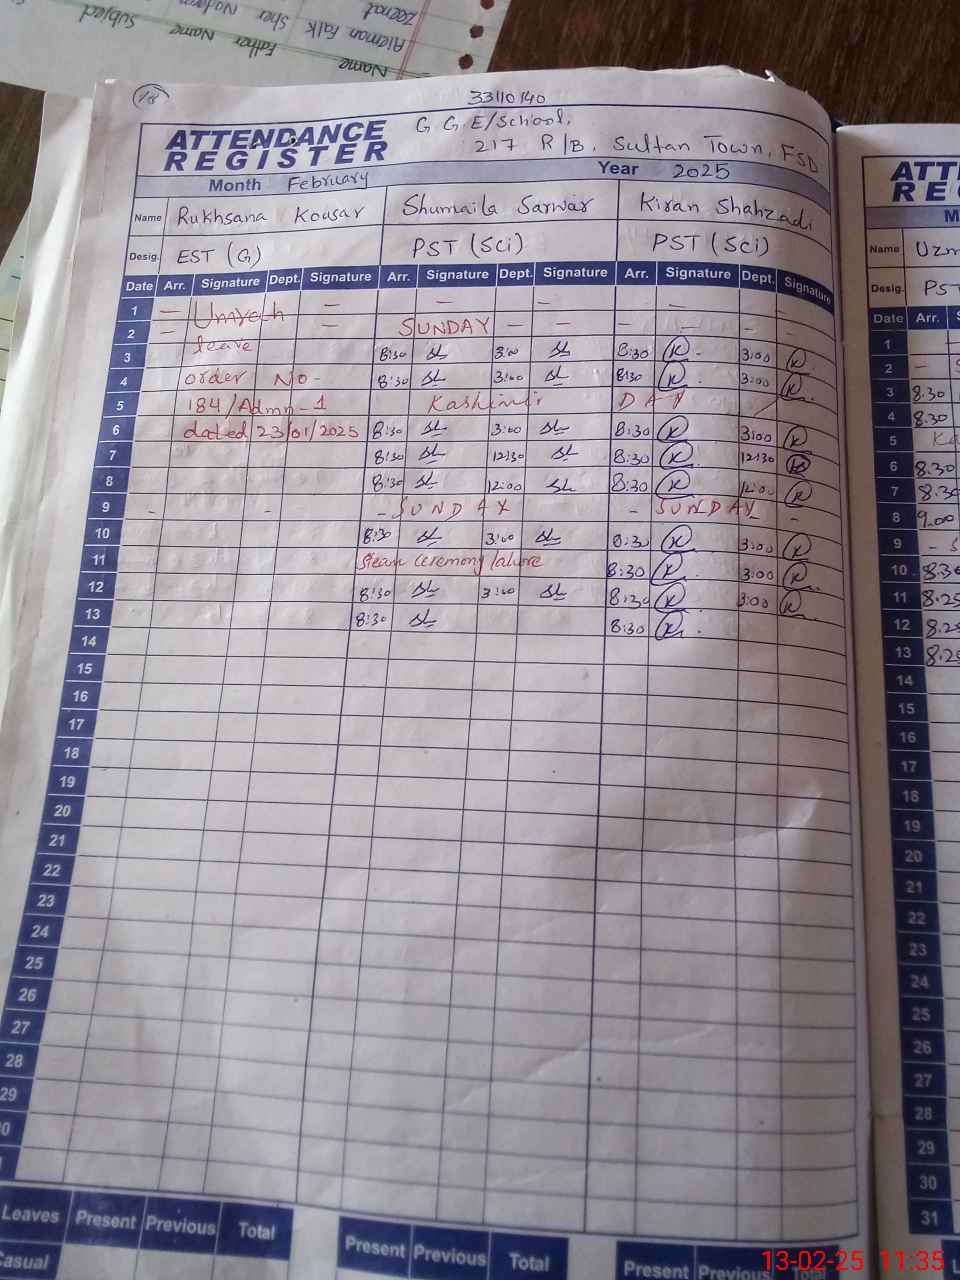 Name Father Name Subject
Aleman Falk Sher
Zeenat
18
33110140
G G E/School,
217 R/B, Sultan Town, FSD
ATTENDANCE
REGISTER
Month February Year 2025
Name Rukhsana Kousar Shumaila Sarwar Kiran Shahzadi
Desig. EST (G) PST (Sci) PST (Sci)
Date Arr. Signature Dept. Signature Arr. Signature Dept. Signature Arr. Signature Dept. Signature
1 — — — — —
2 — — SUNDAY — — — — — —
leave
3 8:30 SL 3:00 SL 8:30 K 3:00 K
4 order No - 8:30 SL 3:00 SL 8:30 K 3:00 K
5 184/Admn-1 Kashmir DAY
6 dated 23/01/2025 8:30 SL 3:00 SL 8:30 K 3:00 K
7 8:30 SL 12:30 SL 8:30 K 12:30 K
8 8:30 SL 12:00 SL 8:30 K 12:00 K
9 - - - - SUNDAY - SUNDAY - -
10 8:30 SL 3:00 SL 8:30 K 3:00 K
11 ceremony lahore 8:30 K 3:00 K
12 8:30 SL 3:00 SL 8:30 K 3:00 K
13 8:30 SL 8:30 K
14
15
16
17
18
19
20
21
22
23
24
25
26
27
28
29
0
Leaves Present Previous Total Present Previous Total Present Previous Total
Casual
ATT
RE
M
Name Uzm
Desig. PST
Date Arr. S
1
2 -
3 8.30
4 8.30
5 Ka
6 8.30
7 8.30
8 9.00
9 - S
10 8.30
11 8.25
12 8.25
13 8.25
14
15
16
17
18
19
20
21
22
23
24
25
26
27
28
29
30
31
13-02-25 11:35